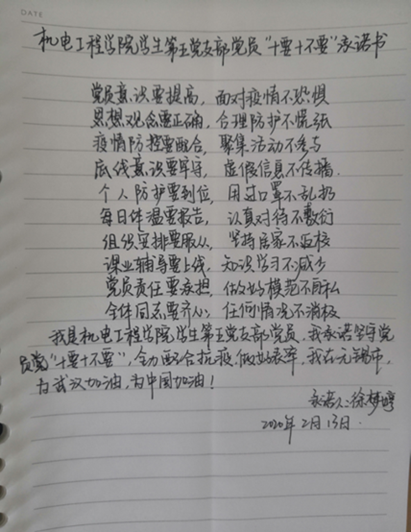 DATE
机电工程学院学生第五党支部党员“十要十不要”承诺书
党员意识要提高，面对疫情不恐惧
思想观念要正确，合理防护不慌张
疫情防控要配合，聚集活动不参与
底线意识要牢守，虚假信息不传播.
个人防护要到位，用过口罩不乱扔
每日体温要报告，认真对待不敷衍
组织安排要服从，坚持居家不返校
课业辅导要上线，知识学习不减少
党员责任要承担，做好模范不自私
全体同志要齐心；任何情况不消极
我是机电工程学院学生第五党支部党员，我承诺坚守党
员“十要十不要”，全力配合抗疫，做好表率，我在无锡市，
为武汉加油，为中国加油！
承诺人：徐梦婷
2020年2月13日.